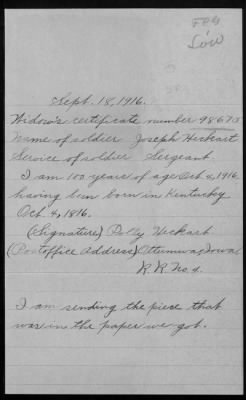 Sept. 18, 1916.
Widow's certificate number 9867
Name of soldier Joseph Heckart
Service of soldier Sergeant
I am 100 years of age Oct. 4, 1916,
having been born in Kentucky
Oct. 4, 1816.
(Signature) Polly Heckart
(Postoffice Address) Ottumwa, Iowa
R. R. No. 4.
I am sending the piece that
was in the paper we got.